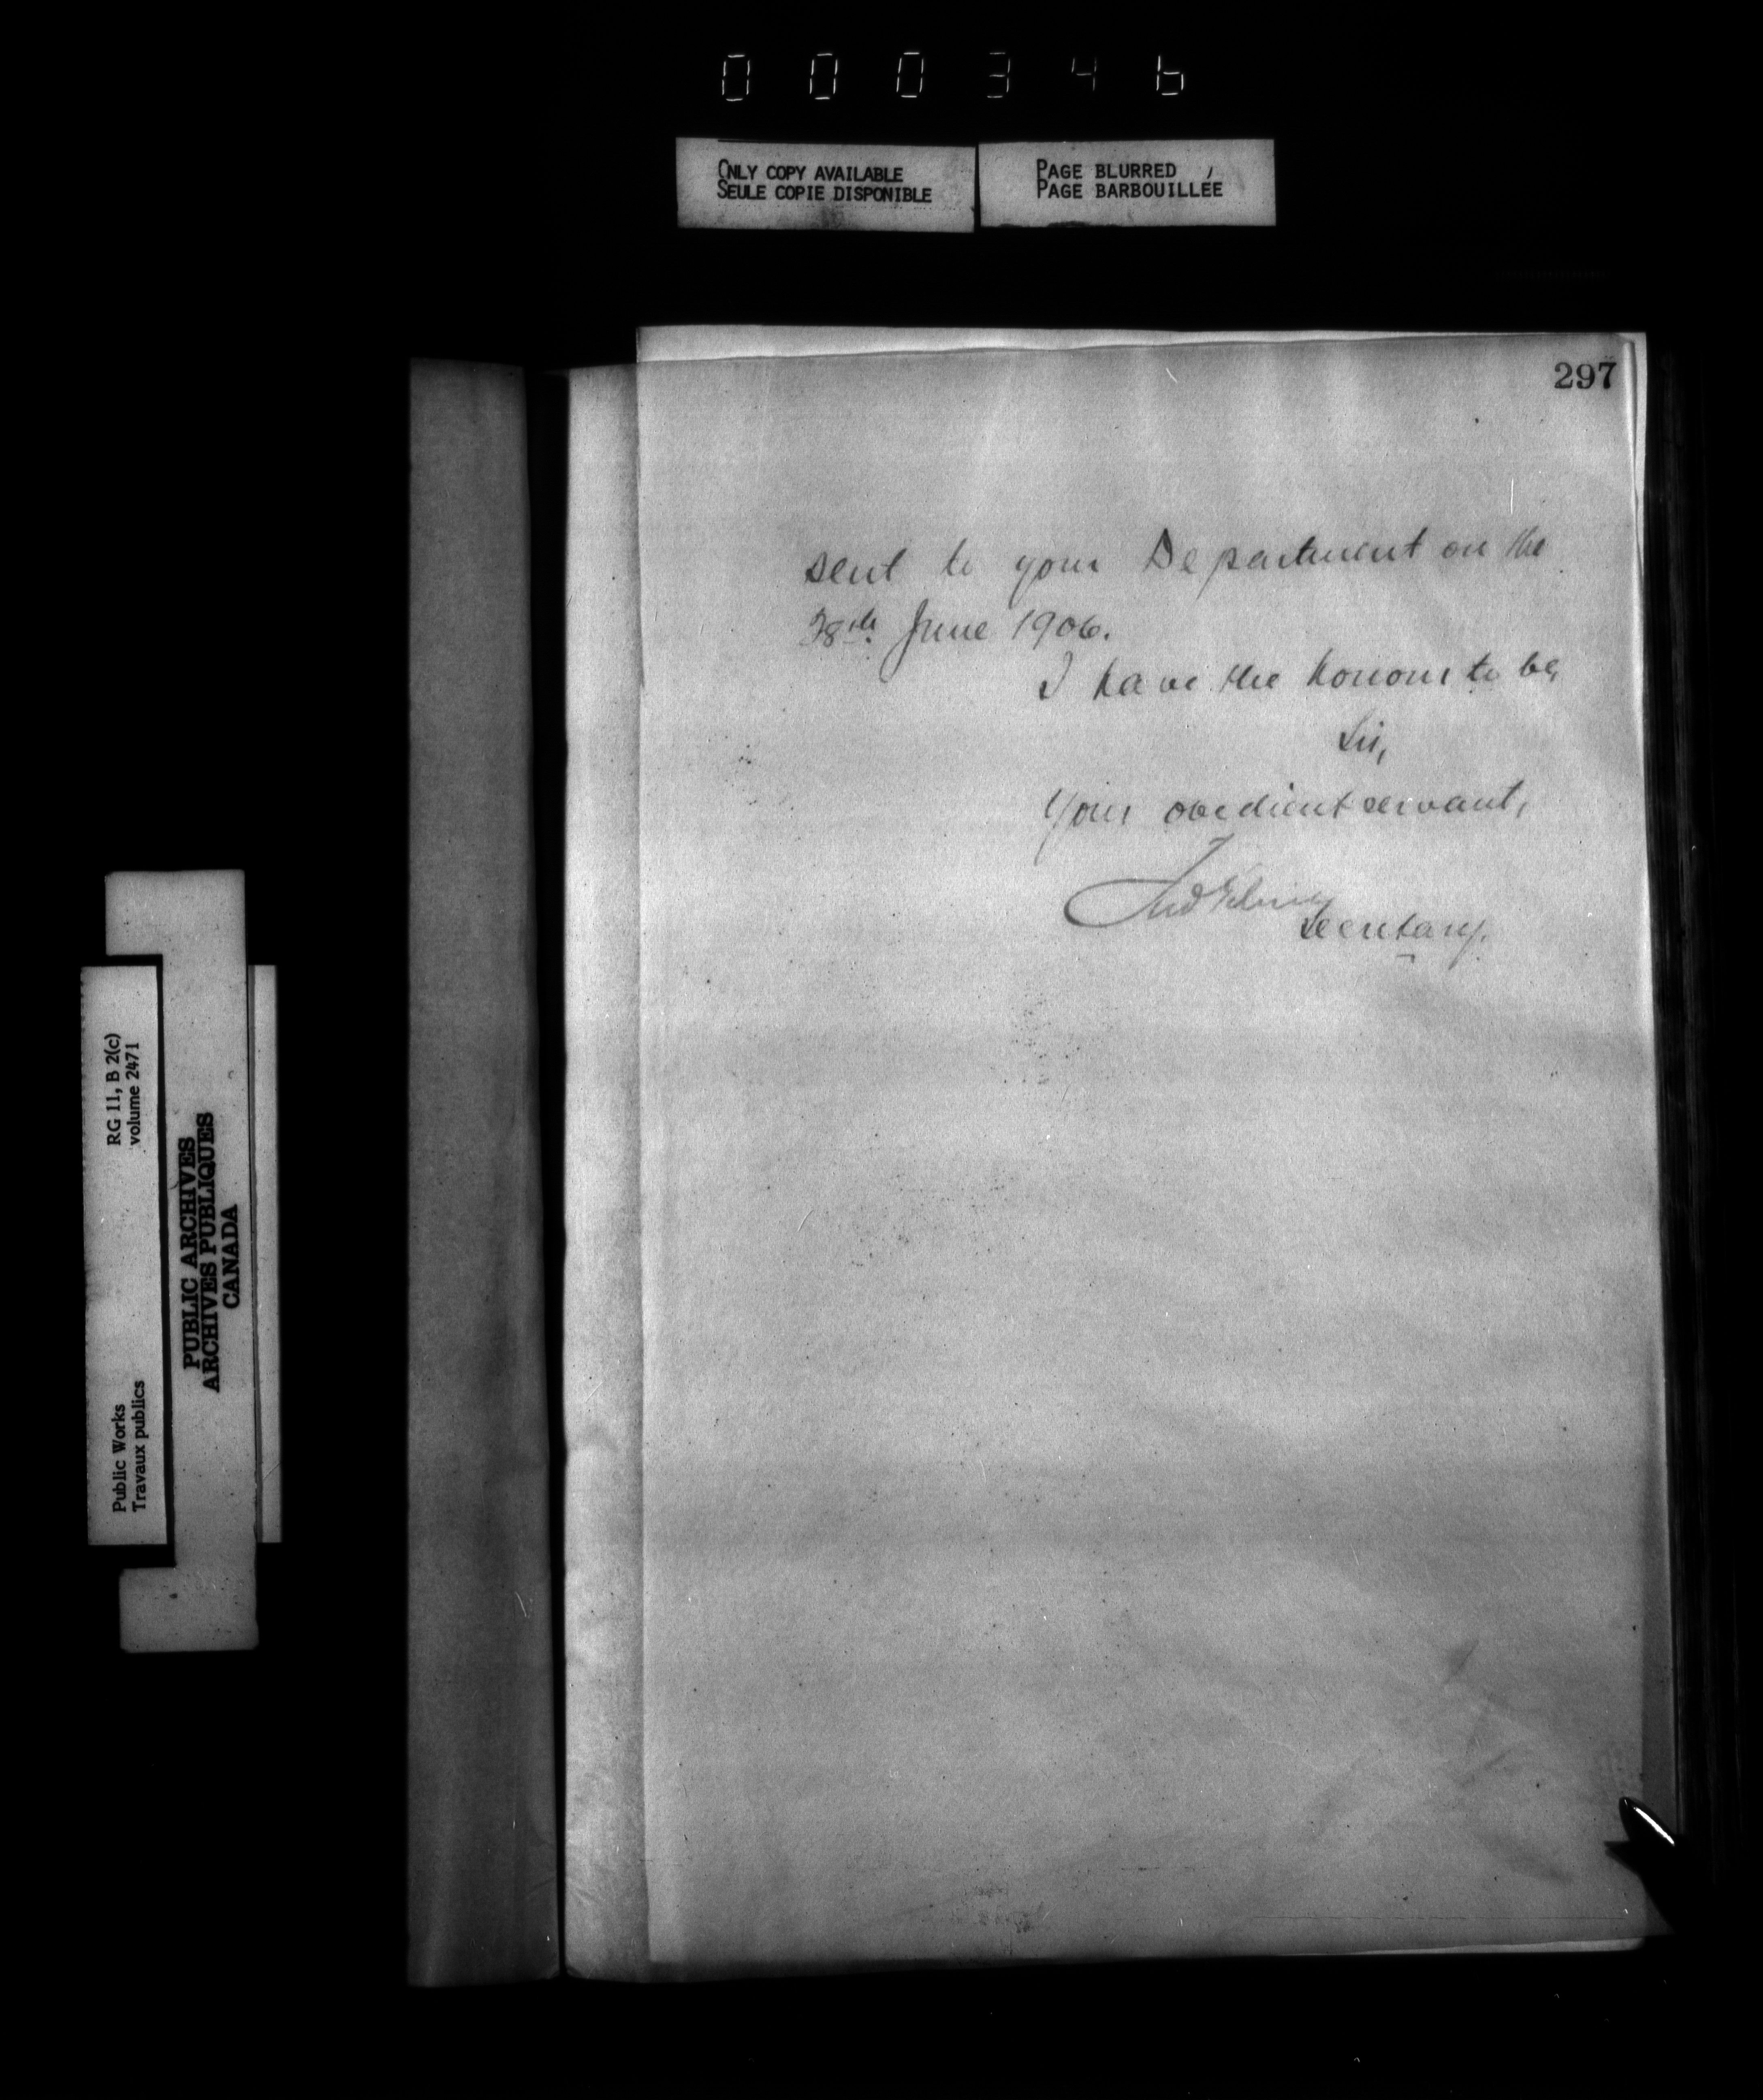 000346
ONLY COPY AVAILABLE
SEULE COPIE DISPONIBLE
PAGE BLURRED
PAGE BARBOUILLÉE
297
sent to your Department on the
28th June 1906.
I have the honour to be,
Sir,
Your obedient servant,
Secretary.
RG 11, B 2(c)
volume 2471
Public Works
Travaux publics
PUBLIC ARCHIVES
ARCHIVES PUBLIQUES
CANADA